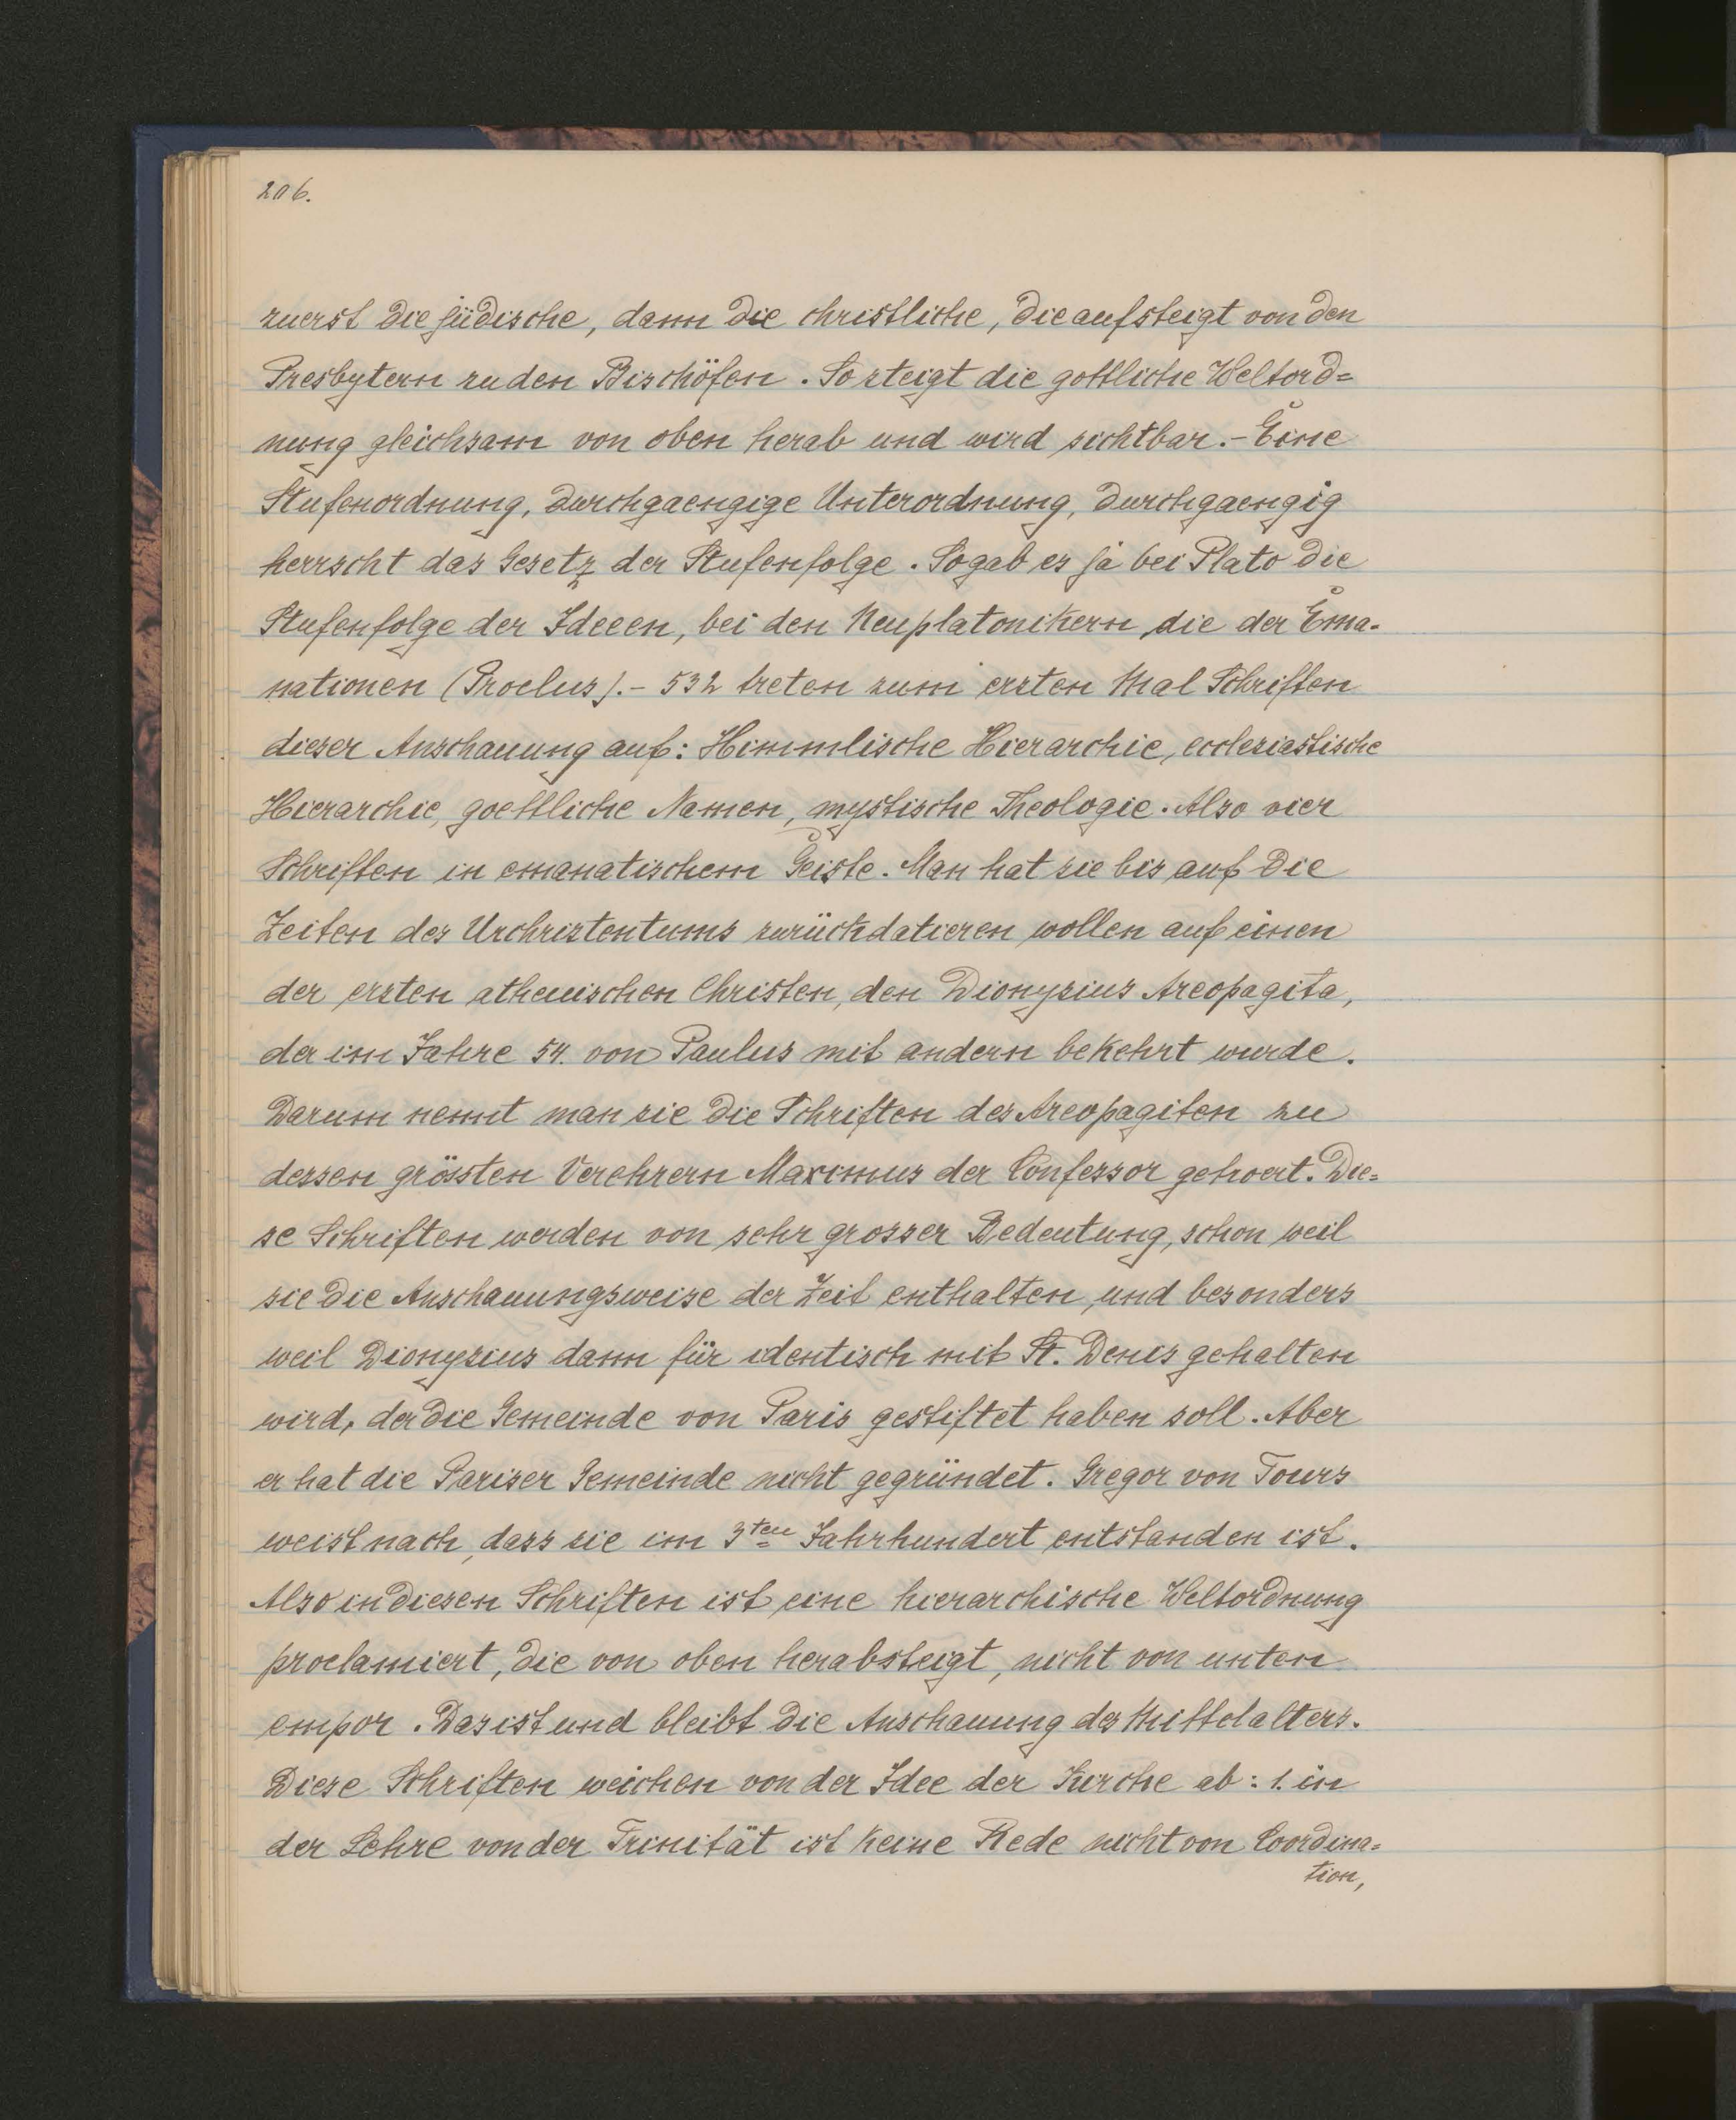 206.
zuerst die jüdische, dann die christliche, die aufsteigt von den
Presbytern zu den Bischöfen. So steigt die gottliche Weltord=
nung gleichsam von oben herab und wird sichtbar. – Eine
Stufenordnung, durchgaengige Unterordnung, durchgaengig
herrscht das Gesetz der Stufenfolge. So gab es ja bei Plato die
Stufenfolge der Ideeen, bei den Neuplatonikern, die der Ema-
nationen (Proclus). – 532 treten zum ersten Mal Schriften
dieser Anschauung auf: Himmlische Hierarchie, ecclesiastische
Hierarchie, goettliche Namen, mystische Theologie. Also vier
Schriften in emanatischem Geiste. Man hat sie bis auf die
Zeiten des Urchristentums zurückdatieren wollen auf einen
der ersten athenischen Christen, den Dionysius Areopagita,
der im Jahre 54. von Paulus mit andern bekehrt wurde.
Darum nennt man sie die Schriften des Areopagiten zu
dessen grössten Verehrern Maximus der Confessor gehoert. Die=
se Schriften werden von sehr grosser Bedeutung, schon weil
sie die Anschauungsweise der Zeit enthalten, und besonders
weil Dionysius dann für identisch mit St. Denis gehalten
wird, der die Gemeinde von Paris gestiftet haben soll. Aber
er hat die Pariser Gemeinde nicht gegründet. Gregor von Tours
weist nach, dass sie im 3ten Jahrhundert entstanden ist.
Also in diesen Schriften ist eine hierarchische Weltordnung
proclamiert, die von oben herabsteigt, nicht von unten
empor. Das ist und bleibt die Anschauung des Mittelalters.
Diese Schriften weichen von der Idee der Kirche ab: 1. in
der Lehre von der Trinität ist keine Rede nicht von Coordina=
tion,